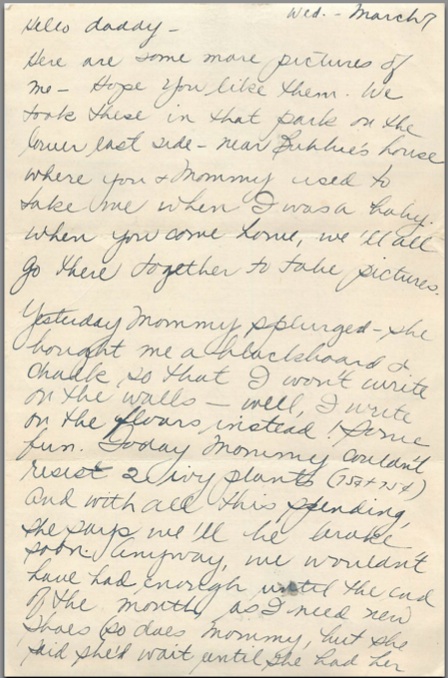 Wed. - March 7
Hello daddy -
Here are some more pictures of
me - Hope you like them. We
took these in that park on the
lower east side - near Bubbie's house
where you & Mommy used to
take me when I was a baby.
When you come home, we'll all
go there together to take pictures.
Yesterday Mommy splurged - she
bought me a blackboard &
chalk so that I won't write
on the walls - well, I write
on the floors instead! Some
fun. Today Mommy couldn't
resist 2 ivy plants (75¢ + 75¢)
and with all this spending,
she says we'll be broke
soon. Anyway, we wouldn't
have had enough until the end
of the month, as I need new
shoes (so does Mommy, but she
said she'd wait until she had her